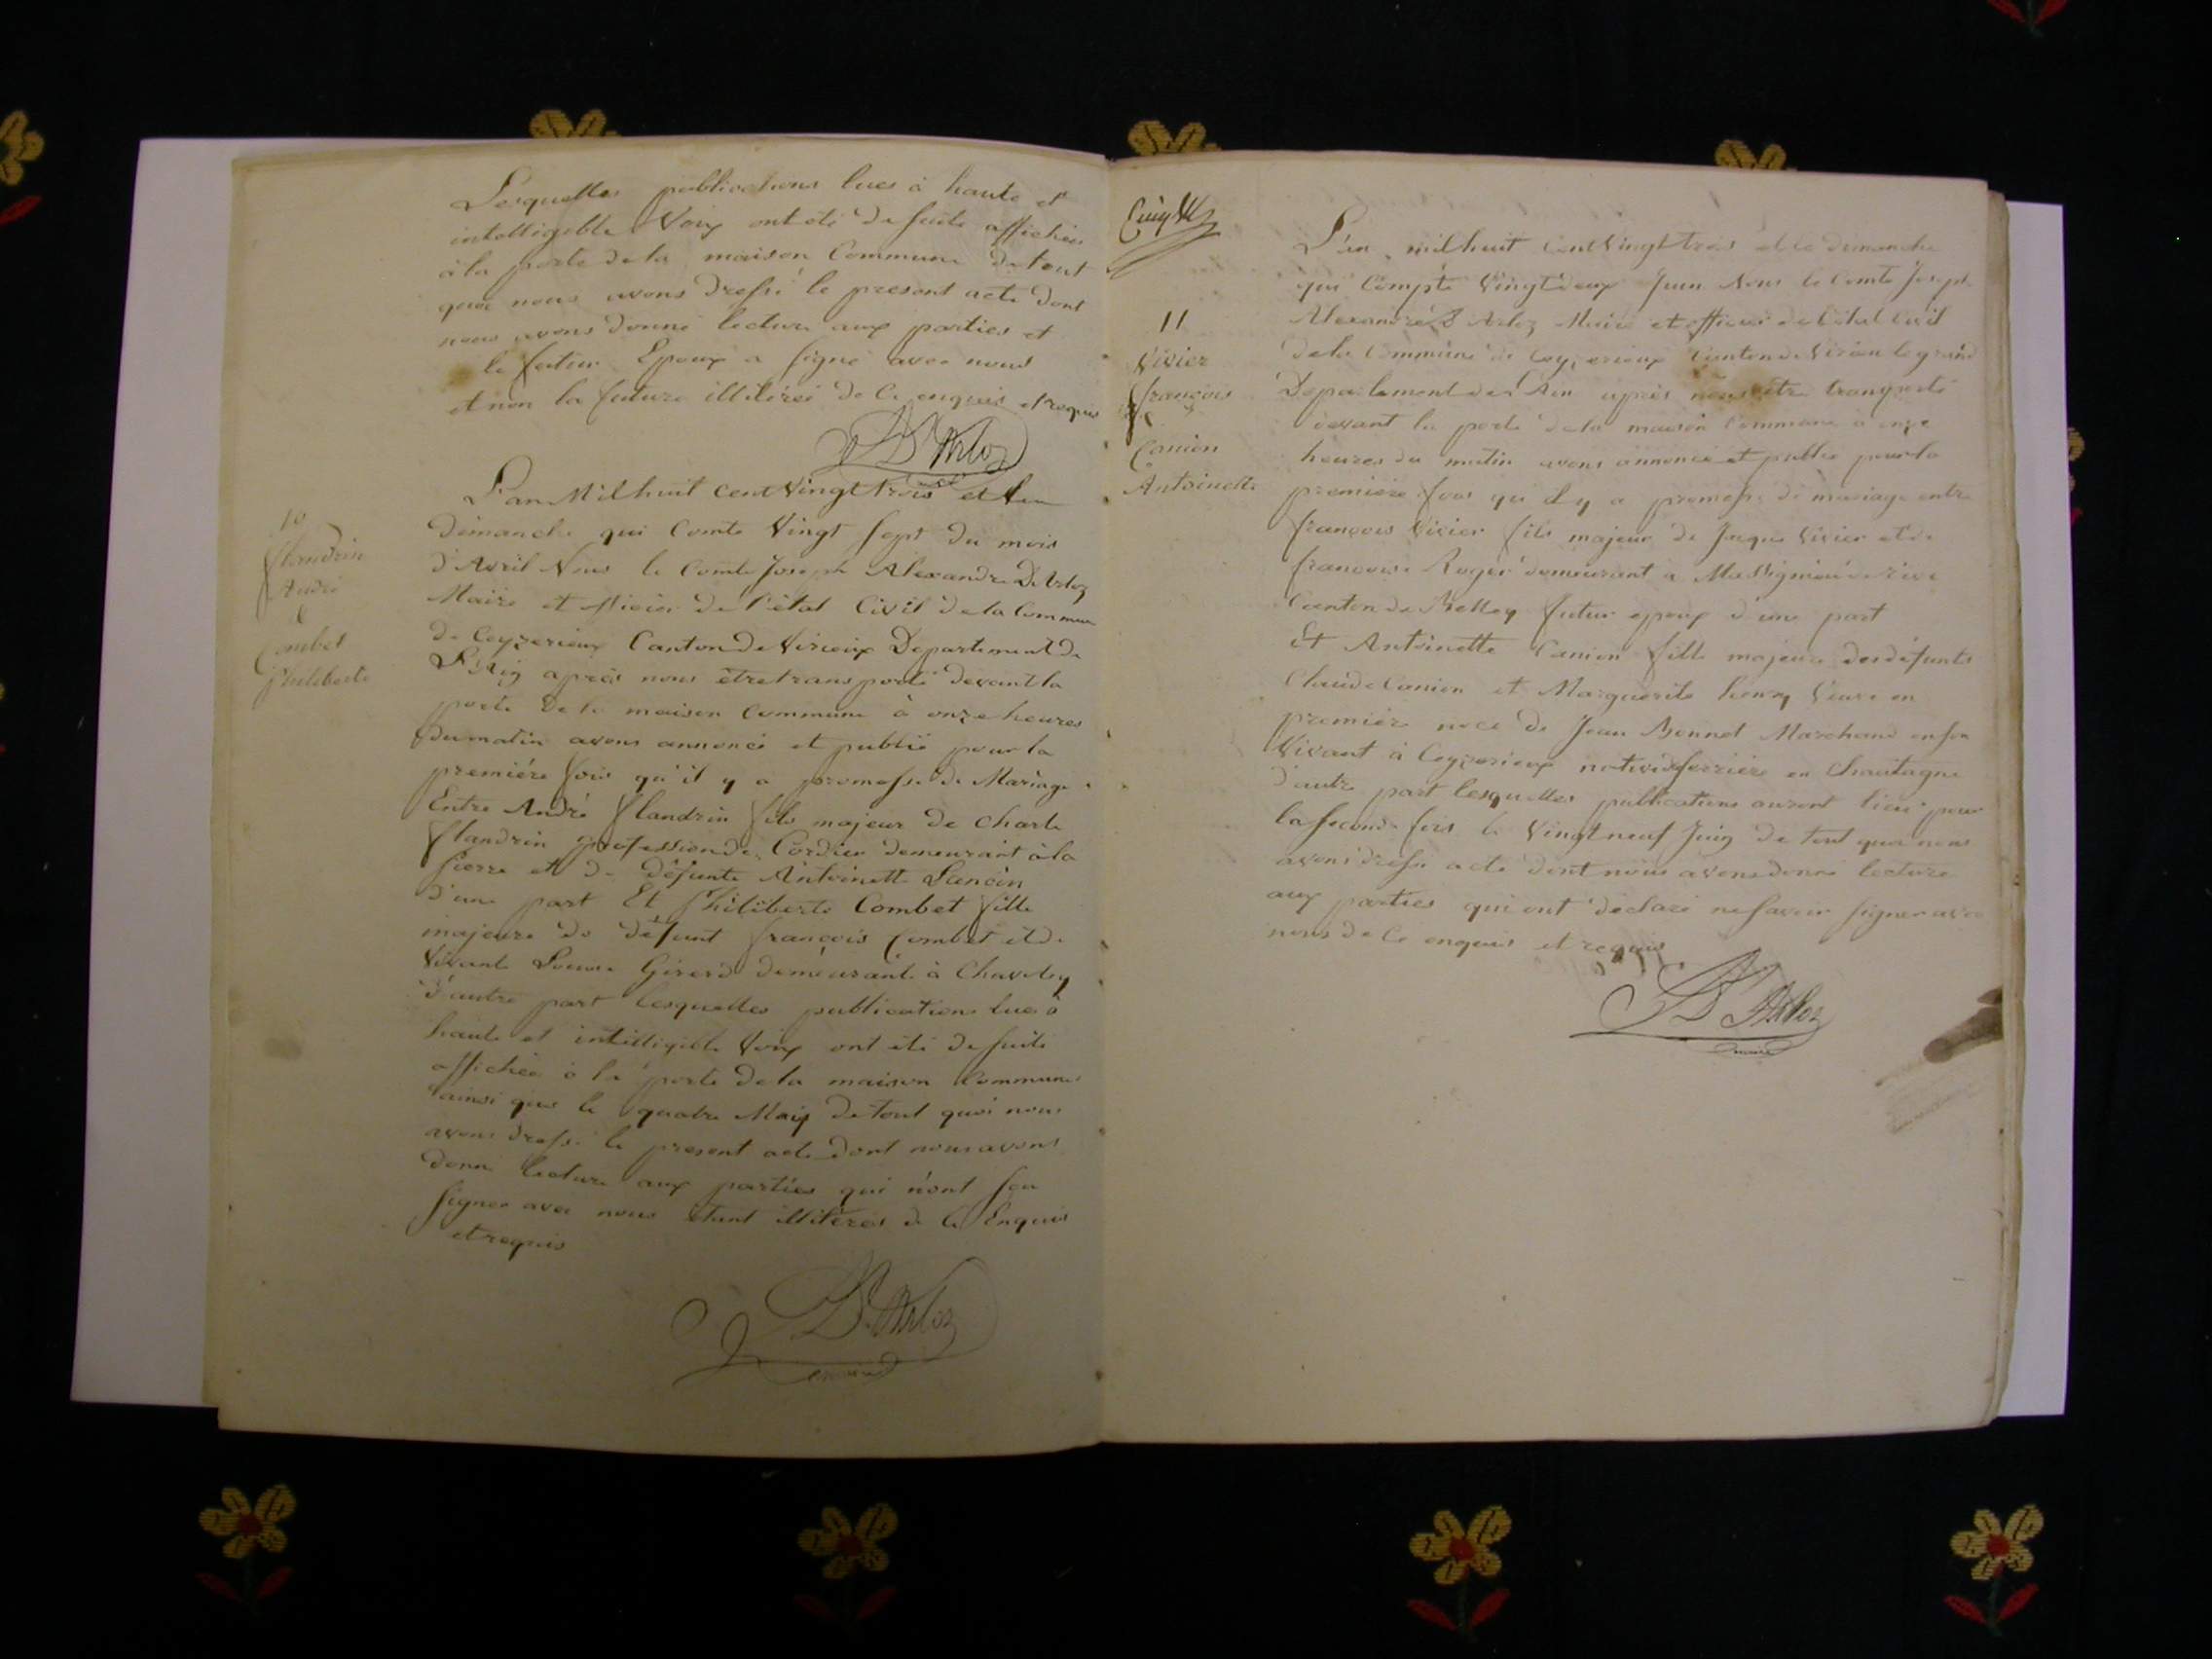 Lesquelles publications lues à haute et
intelligible Voix ont été de suite affichées
à la porte de la maison Commune de tout
quoi nous avons dressé le present acte dont
nous avons donné lecture aux parties et
le futur Epoux a signé avec nous
et non la future illitérée de Ce enquis et requis
D'Arloz
10
flandrin
André
&
Combet
Philiberte
L'an Mil huit cent Vingt trois et le
dimanche qui Comte Vingt sept du mois
d'Avril Nous le Comte Joseph Alexandre D'Arloz
Maire et officier de l'état Civil de la Commune
de Ceyzerieux Canton de Virieux Departement de
L'Ain après nous être transporté devant la
porte de la maison Commune à onze heures
du matin avons annoncé et publié pour la
première fois qu'il y a promesse de Mariage
Entre André flandrin fils majeur de Charle
flandrin profession de Cordier demeurant à la
Serra et de défunte Antoinette Lancin
d'une part Et Philiberte Combet fille
majeure de défunt françois Combet et de
Vivante Louise Girerd demeurante à Chavoley
d'autre part lesquelles publications lues à
haute et intelligible Voix ont été de suite
affichée à la porte de la maison Commune
ainsi que le quatre Maiy de tout quoi nous
avons dressé le present acte dont nous avons
donné lecture aux parties qui n'ont seu
signer avec nous étant illitérés de Ce Enquis
et requis
D'Arloz
maire
11
Vivier
françois
&
Canion
Antoinette
L'an milhuit cent Vingt trois et le dimanche
qui Compte Vingt deux Juin Nous le Comte Joseph
Alexandre D'Arloz Maire et officier de l'état Civil
de la Commune de Ceyzerieux Canton de Virieu le grand
Departement de l'Ain après nous être transporté
devant la porte de la maison Commune à onze
heures du matin avons annoncé et publié pour la
première fois qu'il y a promesse de mariage entre
françois Vivier fils majeur de Jaque Vivier et de
françoise Roger demeurant a Massignieu de rive
Canton de Belley futur epoux d'une part
Et Antoinette Canion fille majeure des défunts
Claude Canion et Marguerite henry Veuve en
première noce de Jean Bonnet Marchand en son
Vivant à Ceyzerieux native de serriere en Chautagne
d'autre part lesquelles publications auront lieu pour
la seconde fois le Vingt neuf Juin de tout quoi nous
avons dressé acte dont nous avons donné lecture
aux parties qui ont déclaré ne savoir signer avec
nous de Ce enquis et requis
D'Arloz
maire